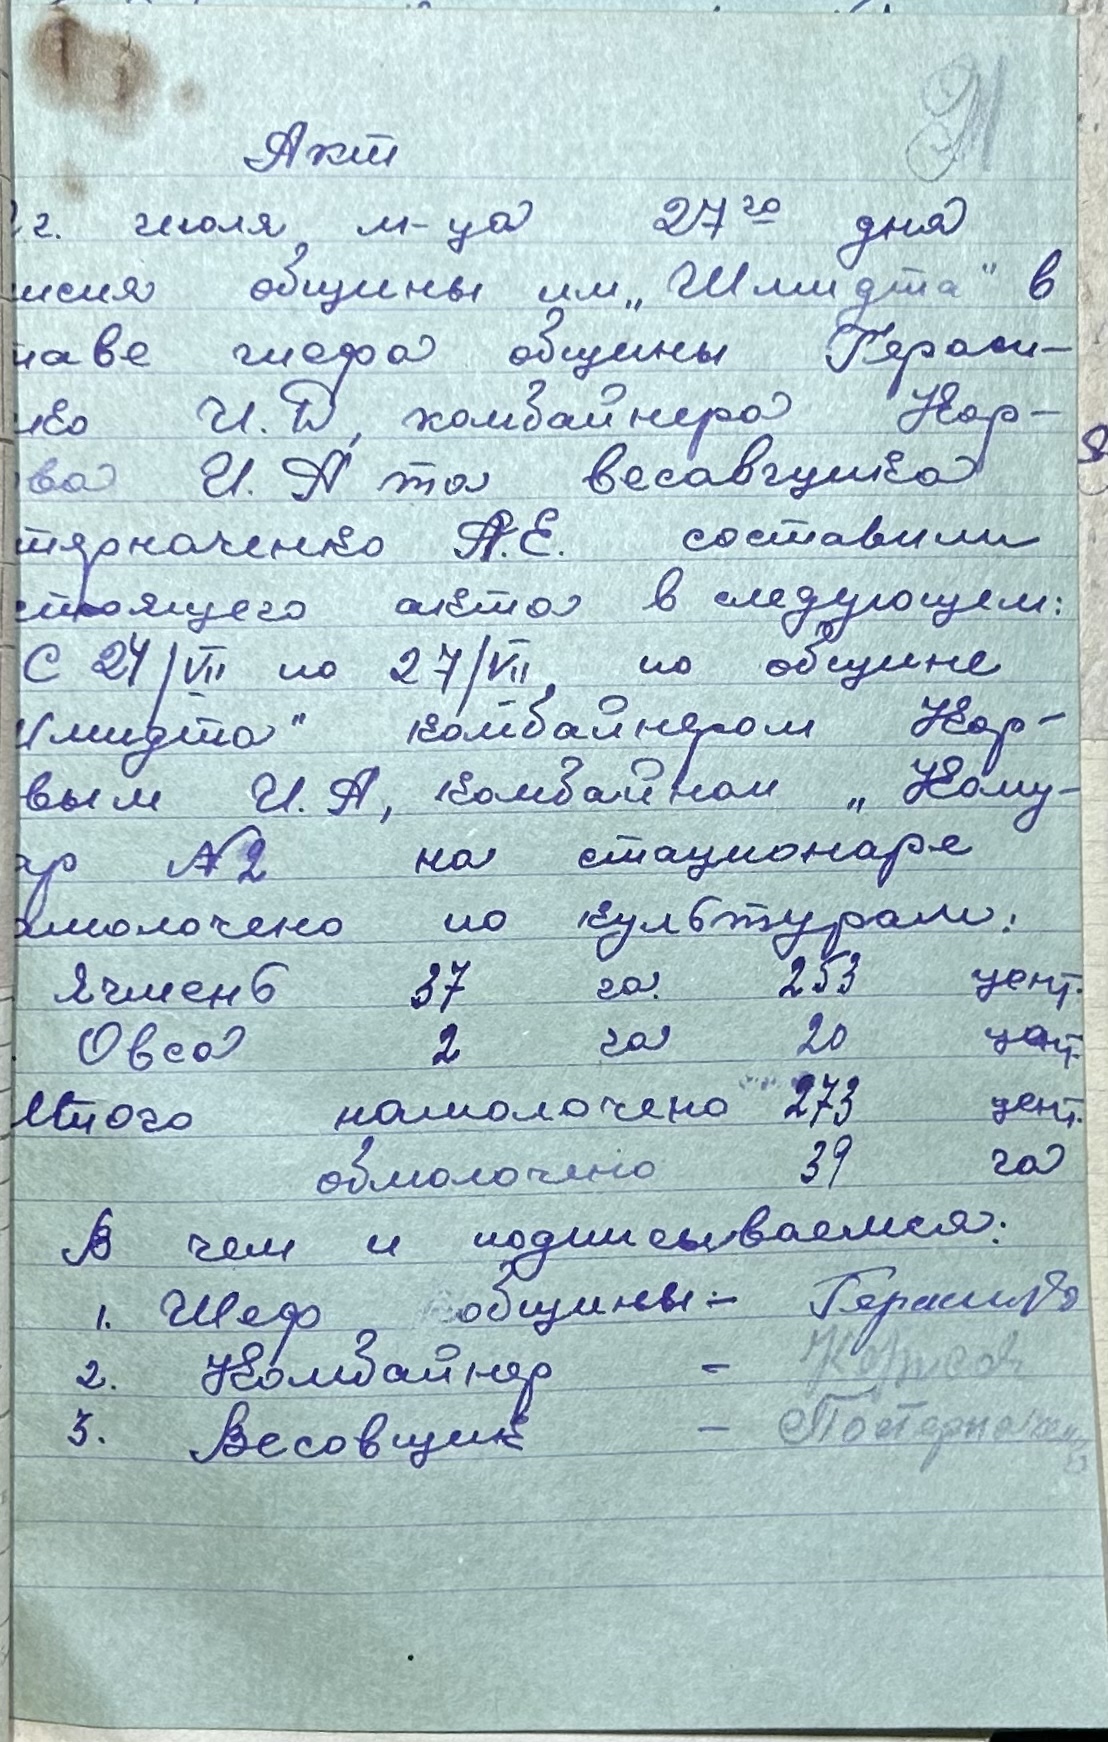 Акт
г. июля м-ца 27го дня
исия общины им „Шмидта" в
таве шефа общины Гераси-
ко И.Д, комбайнера Кор-
ва И.А та весавщика
терначенко А.Е. составили
стоящего акта в следующем:
С 24/VII по 27/VII по общине
Шмидта" комбайнером Кор-
вым И.А, комбайном „Кому-
ар №2 на стационаре
омолочено по культурам:
Ячмень 37 га. 253 цент.
Овса 2 га 20 цент.
Итого намолочено 273 цент.
обмолочено 39 га
В чем и подписываемся:
1. Шеф общины:-
2. Комбайнер -
3. Весовщик -